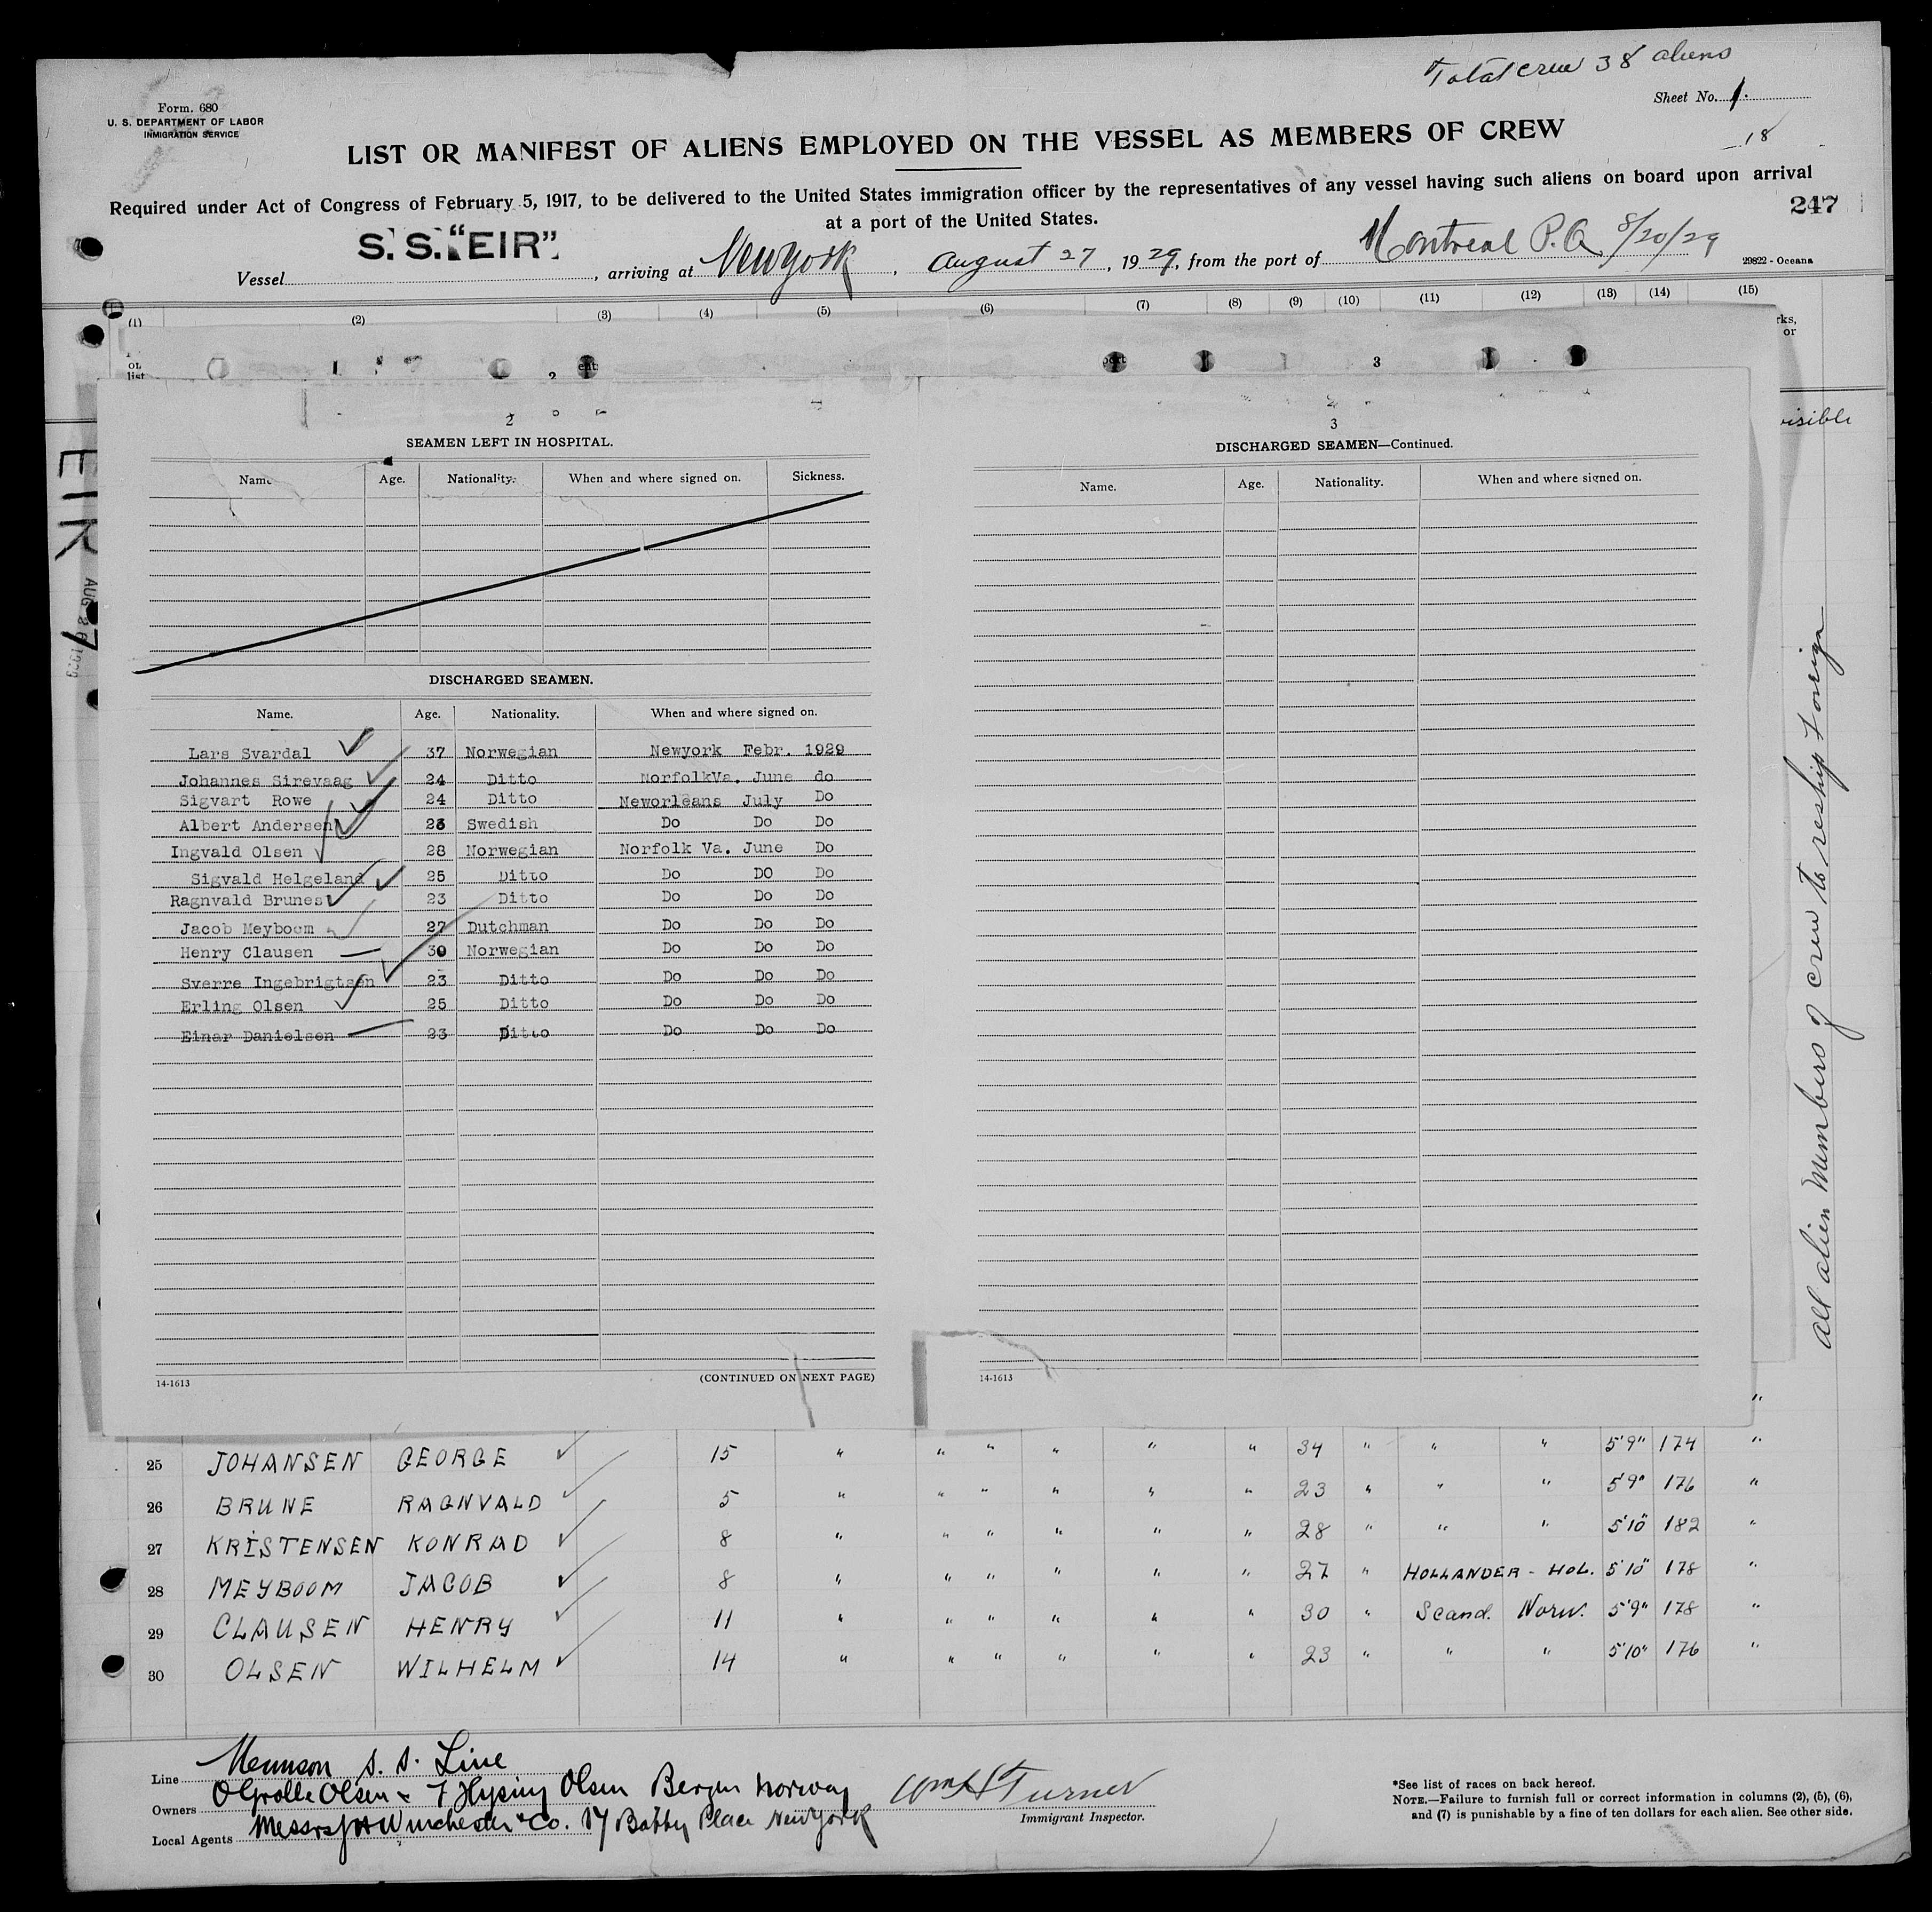 Total crew 38 aliens
Form. 680
U. S. DEPARTMENT OF LABOR
INMIGRATION SERVICE
Sheet No. 1.
18
LIST OR MANIFEST OF ALIENS EMPLOYED ON THE VESSEL AS MEMBERS OF CREW
Required under Act of Congress of February 5, 1917, to be delivered to the United States immigration officer by the representatives of any vessel having such aliens on board upon arrival
at a port of the United States.
247
Vessel S. S. "EIR", arriving at New York, August 27, 1929, from the port of Montreal P.Q. 8/20/29
29822 - Oceana
(1) (2) (3) (4) (5) (6) (7) (8) (9) (10) (11) (12) (13) (14) (15)
rks,
or
list
2 3
visible
EIR
2
SEAMEN LEFT IN HOSPITAL.
Name Age. Nationality. When and where signed on. Sickness.
DISCHARGED SEAMEN.
Name. Age. Nationality. When and where signed on.
Lars Svardal 37 Norwegian Newyork Febr. 1929
Johannes Sirevaag 24 Ditto NorfolkVa. June do
Sigvart Rowe 24 Ditto Neworleans July Do
Albert Andersen 23 Swedish Do Do Do
Ingvald Olsen 28 Norwegian Norfolk Va. June Do
Sigvald Helgeland 25 Ditto Do DO Do
Ragnvald Brunes 23 Ditto Do Do Do
Jacob Meyboom 27 Dutchman Do Do Do
Henry Clausen 30 Norwegian Do Do Do
Sverre Ingebrigtsen 23 Ditto Do Do Do
Erling Olsen 25 Ditto Do Do Do
Einar Danielsen 23 Ditto Do Do Do
14-1613 (CONTINUED ON NEXT PAGE)
3
DISCHARGED SEAMEN—Continued.
Name. Age. Nationality. When and where signed on.
14-1613
all alien members of crew to reship foreign
"
25 JOHANSEN GEORGE 15 " " " " " " 34 " " " 5'9" 174 "
26 BRUNE RAGNVALD 5 " " " " " " 23 " " " 5'9" 176 "
27 KRISTENSEN KONRAD 8 " " " " " " 28 " " " 5'10" 182 "
28 MEYBOOM JACOB 8 " " " " " " 27 " HOLLANDER - HOL. 5'10" 178 "
29 CLAUSEN HENRY 11 " " " " " " 30 " Scand. Norw. 5'9" 178 "
30 OLSEN WILHELM 14 " " " " " " 23 " " " 5'10" 176 "
Line Munson S. S. Line
Owners O Grolle Olsen & F Hysing Olsen Bergen Norway
Local Agents Messrs J H Winchester & Co. 17 Battery Place New York
Wm H Turner
Immigrant Inspector.
*See list of races on back hereof.
NOTE.—Failure to furnish full or correct information in columns (2), (5), (6),
and (7) is punishable by a fine of ten dollars for each alien. See other side.